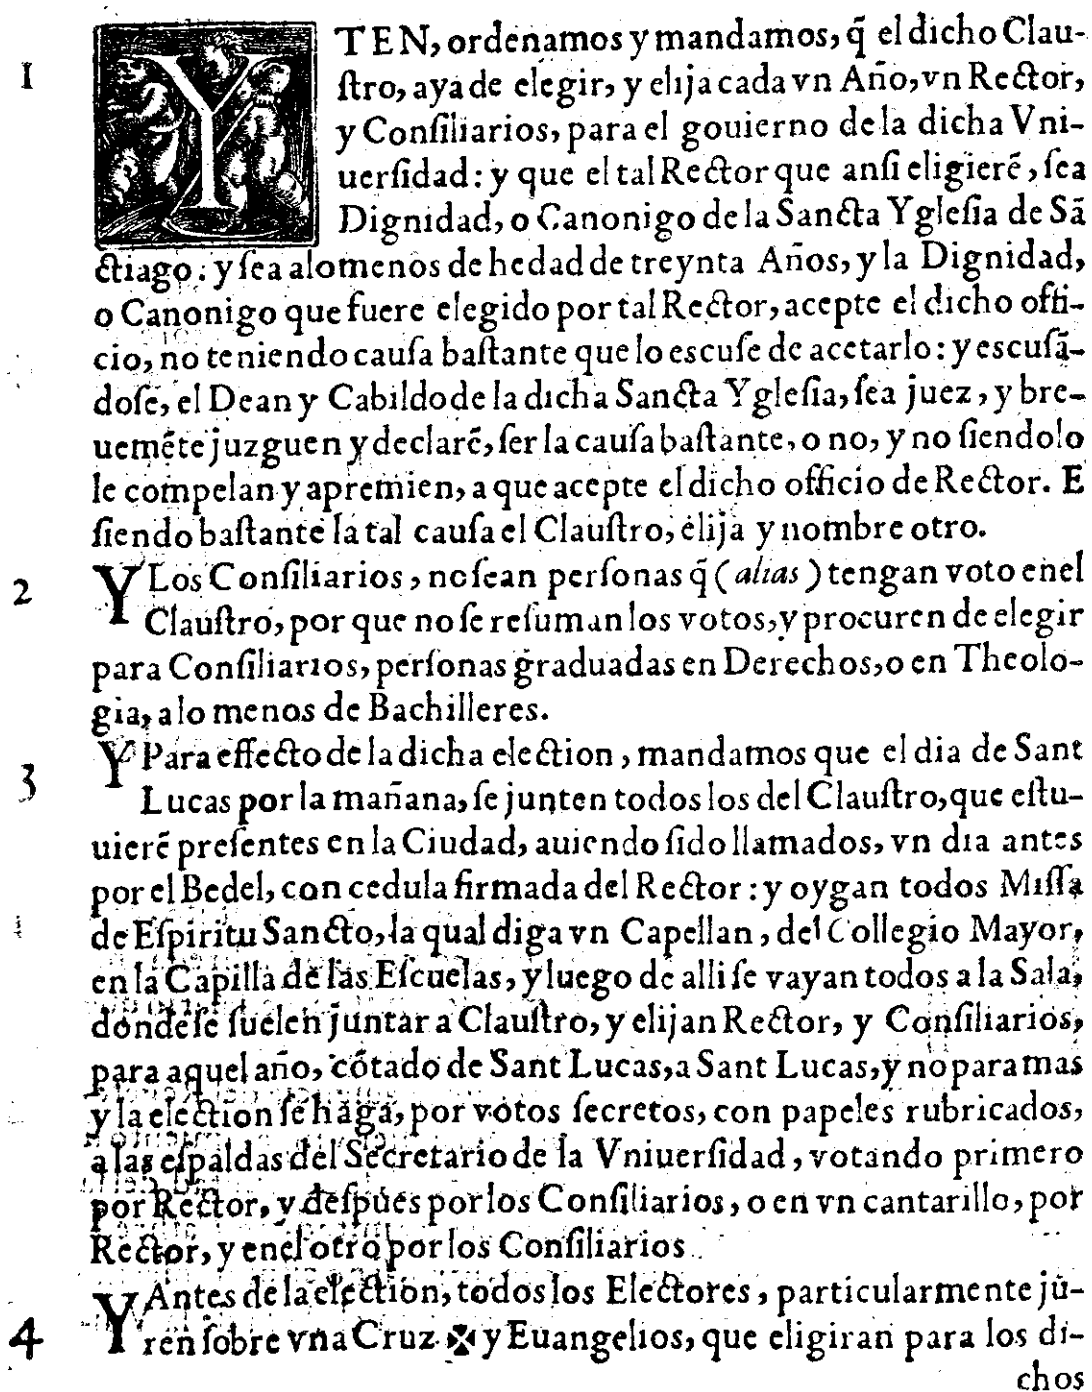 1 YTEN, ordenamos y mandamos, q̃ el dicho Clau-
ſtro, aya de elegir, y elija cada vn Año, vn Rector,
y Conſiliarios, para el gouierno de la dicha Vni-
uerſidad: y que el tal Rector que anſi eligierẽ, ſea
Dignidad, o Canonigo de la Sancta Ygleſia de Sã
ctiago: y ſea alomenos de hedad de treynta Años, y la Dignidad,
o Canonigo que fuere elegido por tal Rector, acepte el dicho offi-
cio, no teniendo cauſa baſtante que lo escuſe de acetarlo: y escuſã-
doſe, el Dean y Cabildo de la dicha Sancta Ygleſia, ſea juez, y bre-
uemẽte juzguen y declarẽ, ſer la cauſa baſtante, o no, y no ſiendolo
le compelan y apremien, a que acepte el dicho officio de Rector. E
ſiendo baſtante la tal cauſa el Clauſtro, elija y nombre otro.
2 Y Los Conſiliarios, no ſean perſonas q̃ (alias) tengan voto enel
Clauſtro, por que no ſe reſuman los votos, y procuren de elegir
para Conſiliarios, perſonas graduadas en Derechos, o en Theolo-
gia, a lo menos de Bachilleres.
3 Y Para effecto de la dicha election, mandamos que el dia de Sant
Lucas por la mañana, ſe junten todos los del Clauſtro, que eſtu-
uierẽ preſentes en la Ciudad, auiendo ſido llamados, vn dia antes
por el Bedel, con cedula firmada del Rector: y oygan todos Miſſa
de Eſpiritu Sancto, la qual diga vn Capellan, del Collegio Mayor,
en la Capilla de las Eſcuelas, y luego de alli ſe vayan todos a la Sala,
donde ſe ſuelen juntar a Clauſtro, y elijan Rector, y Conſiliarios,
para aquel año, cõtado de Sant Lucas, a Sant Lucas, y no para mas
y la election ſe haga, por votos ſecretos, con papeles rubricados,
a las eſpaldas del Secretario de la Vniuerſidad, votando primero
por Rector, y deſpues por los Conſiliarios, o en vn cantarillo, por
Rector, y enel otro por los Conſiliarios.
4 Y Antes de la election, todos los Electores, particularmente jú-
ren ſobre vna Cruz ✠ y Euangelios, que eligiran para los di-
chos